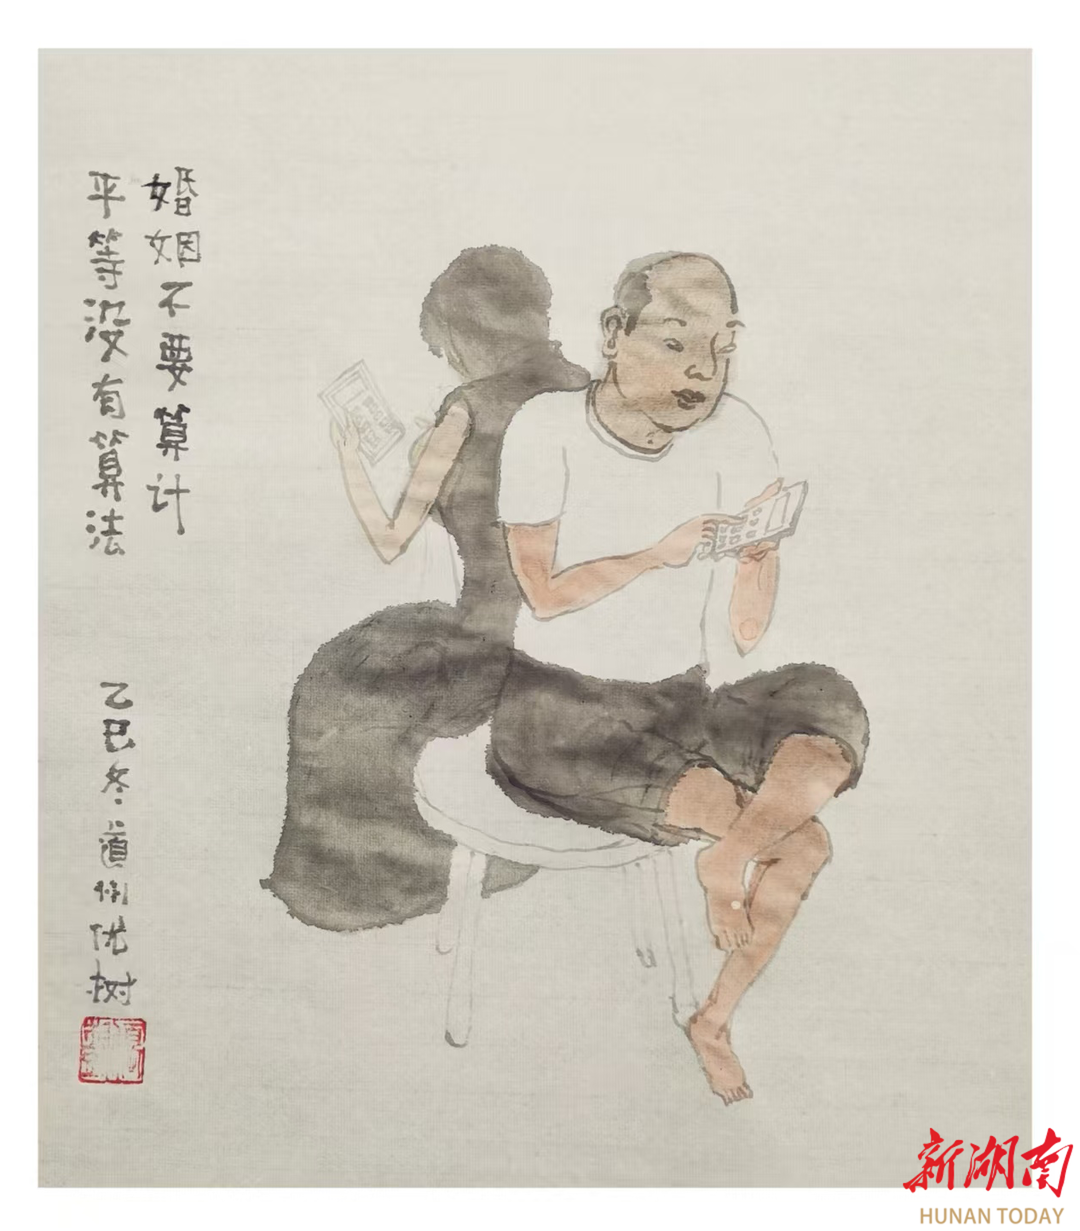 婚姻不要算计
平等没有算法
乙巳冬道州优树
新湖南
HUNAN TODAY